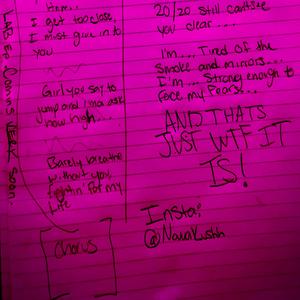 Hmm..
I get too close,
I must give in to
you
Girl you say to
jump and I'ma ask
how high....
Barely breathe
without you,
for my
Life
Chorus
20/20 still cant see
you clear....
I'm... Tired of the
smoke and mirrors...
I'm... Strong enough to
face my fears...
AND THATS
JUST WTF IT
IS!
Insta: